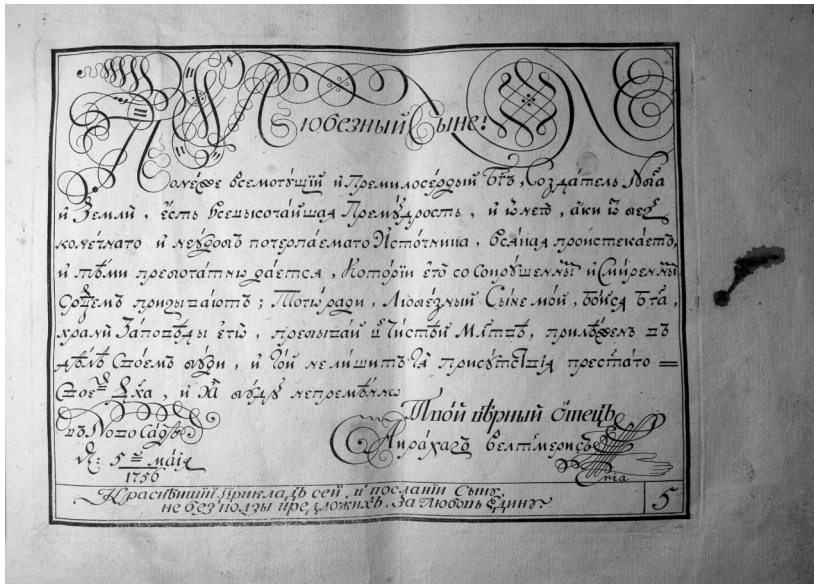 Любезный Сыне!
Понеже всемогущїй и Премилосердый Бг҃ъ, Создатель Неба
и Земли, есть Всевысочайшая Премудрость, и ѿ негѡ, аки ѿ без=
конечнаго и неудобь почерпаемаго Источника, всякая проистекаетъ,
и тѣми пребогатнѡ дается, Которїи его со Сокрушеннымъ и Смиреннымъ
Срдцемъ призываютъ; Тогѡ ради, Любезный Сыне мой, Бойся Бг҃а,
храни Заповѣды егѡ, пребывай в Чистѣй Млтвѣ, прилѣженъ въ
дѣлѣ Своемъ буди, и Той не лишитъ Тя присутствїя пресвятаго =
Своегѡ Дх҃а, и Азъ буду непремѣннѡ
Твой вѣрный Отецъ
Аирахазъ Велтмерисъ
въ Ново Садѣ
Д: 5 маїя
1756
Красивѣйшїй Прикладъ сей, и посланїи Сыну,
не без ползы предложихъ, За Любовь Едину
5